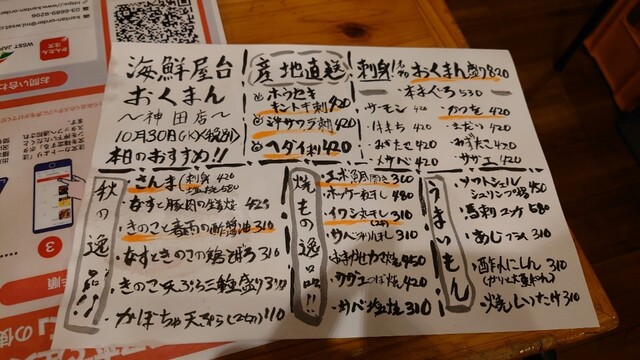 海鮮屋台
おくまん
～神田店～
10月30日(火)(税別)
本日のおすすめ!!
産地直送
ホウセキ
キントキ刺 420
沖サワラ刺 420
ヘダイ刺 420
刺身 名物 おくまん盛り 820
本まぐろ 530
サーモン 420
カツオ 420
はまち 420
まだい 420
〆サバ 420
サザエ 420
秋の逸品!!
さんま 刺身 420
塩焼 580
なすと豚肉の生姜焼 429
きのこと春雨の酢醤油 310
きのこ天ぷら三種盛り 310
かぼちゃ天ぷら(2切) 110
焼もの逸品!!
エボ鯛開き 310
ホッケ一夜干し 480
イワシ丸干し 310
サバみりん干し 310
サザエつぼ焼 420
サバ塩焼 310
うまいもん
ソフトシェル
シュリンプ揚 450
馬刺ユッケ 580
あじフライ 310
酢にしん 310
焼しいたけ 310
かんたん
注文
WEST JAPAN
お問い合わ
03-6689-9296
3